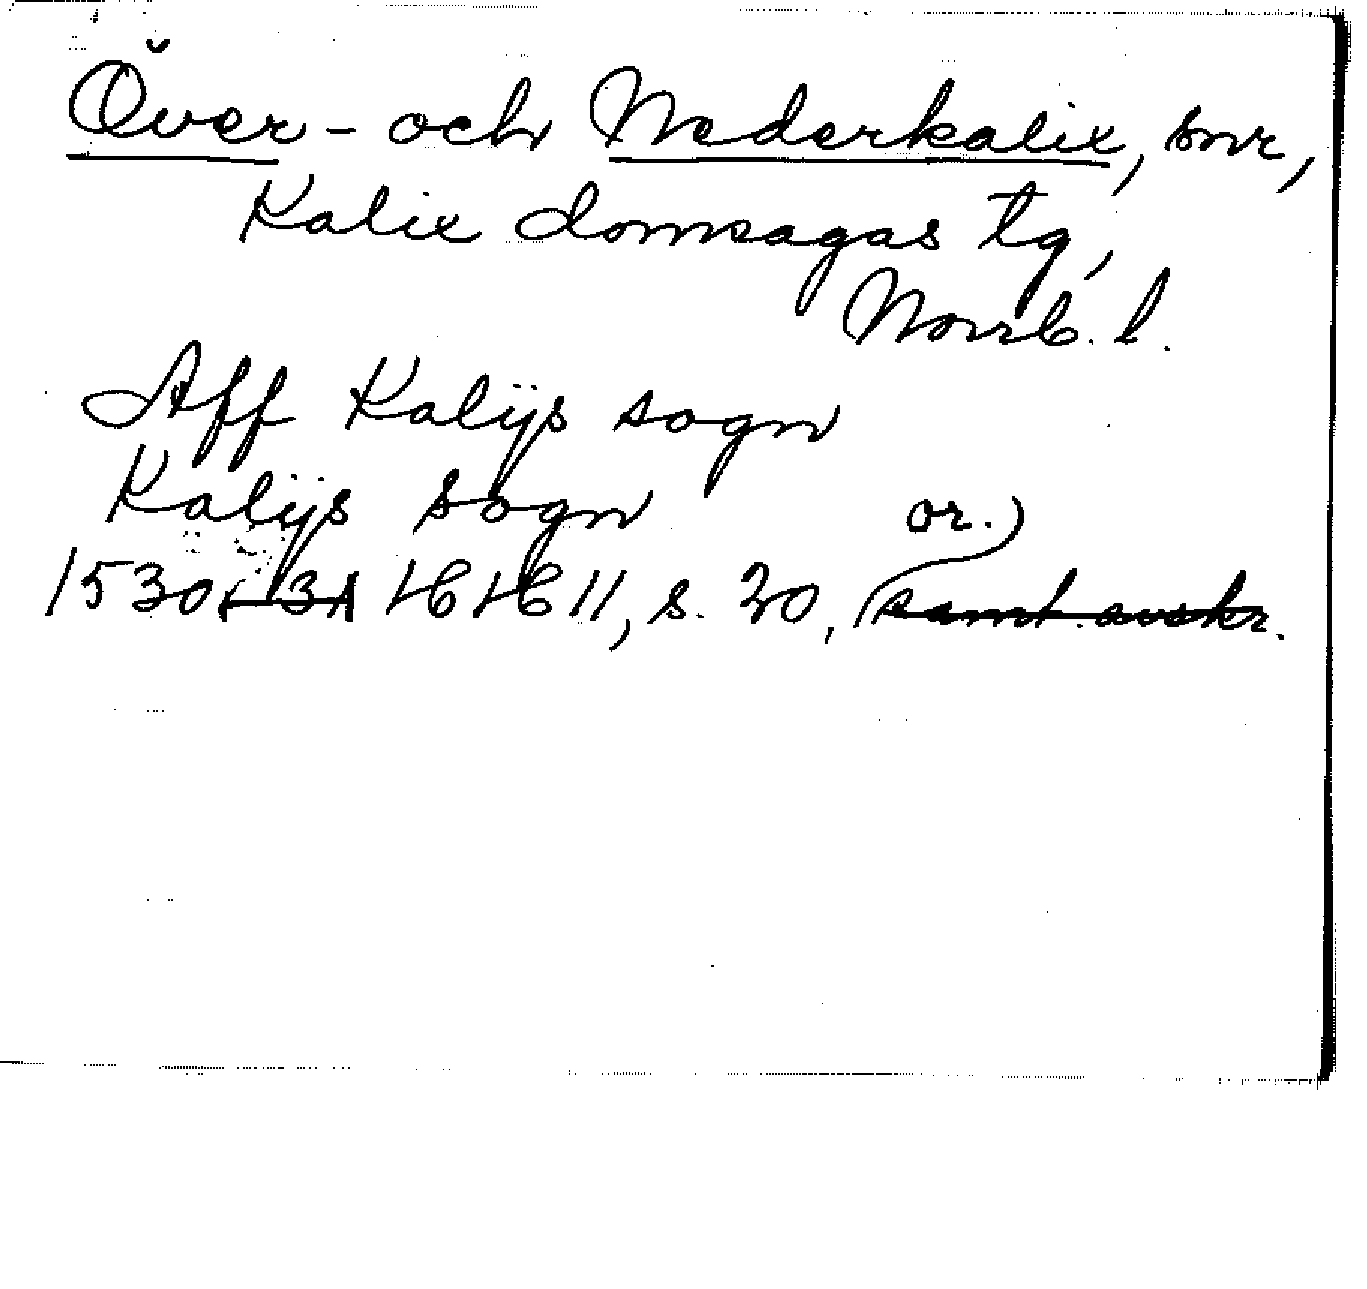 Över- och Nederkalix, snr,
Kalix domsagas tg,
Norrb. l.
Aff Kalijs sogn
Kalijs sogn or.)
1530 - 31 HH 11, s. 30, samt. avskr.